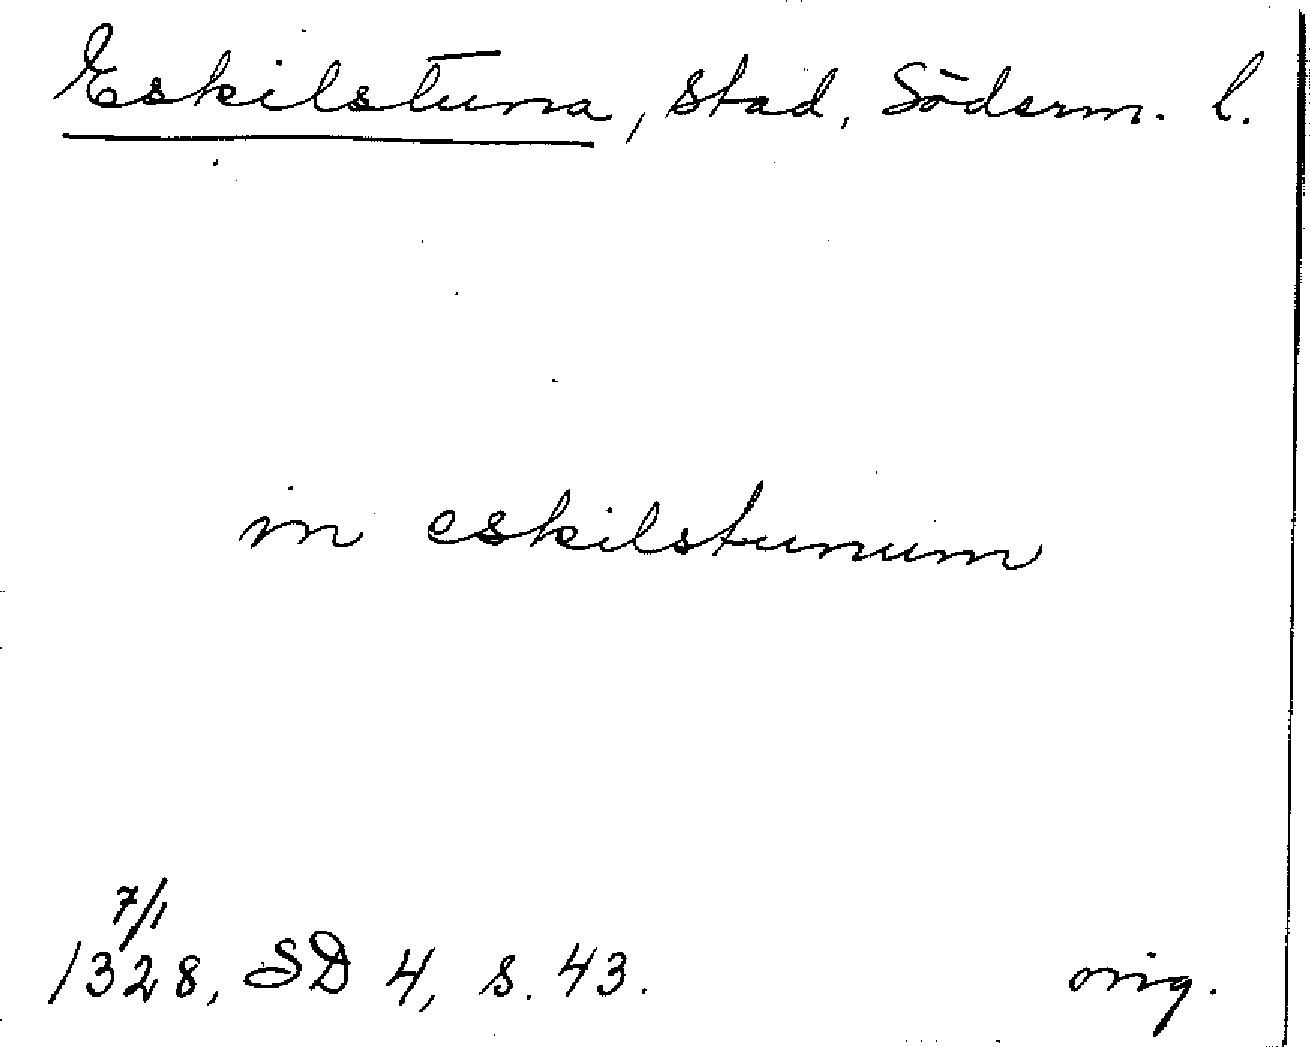 Eskilstuna, stad, Söderm. l.
in eskilstunum
7/1
1328, SD 4, s. 43. orig.